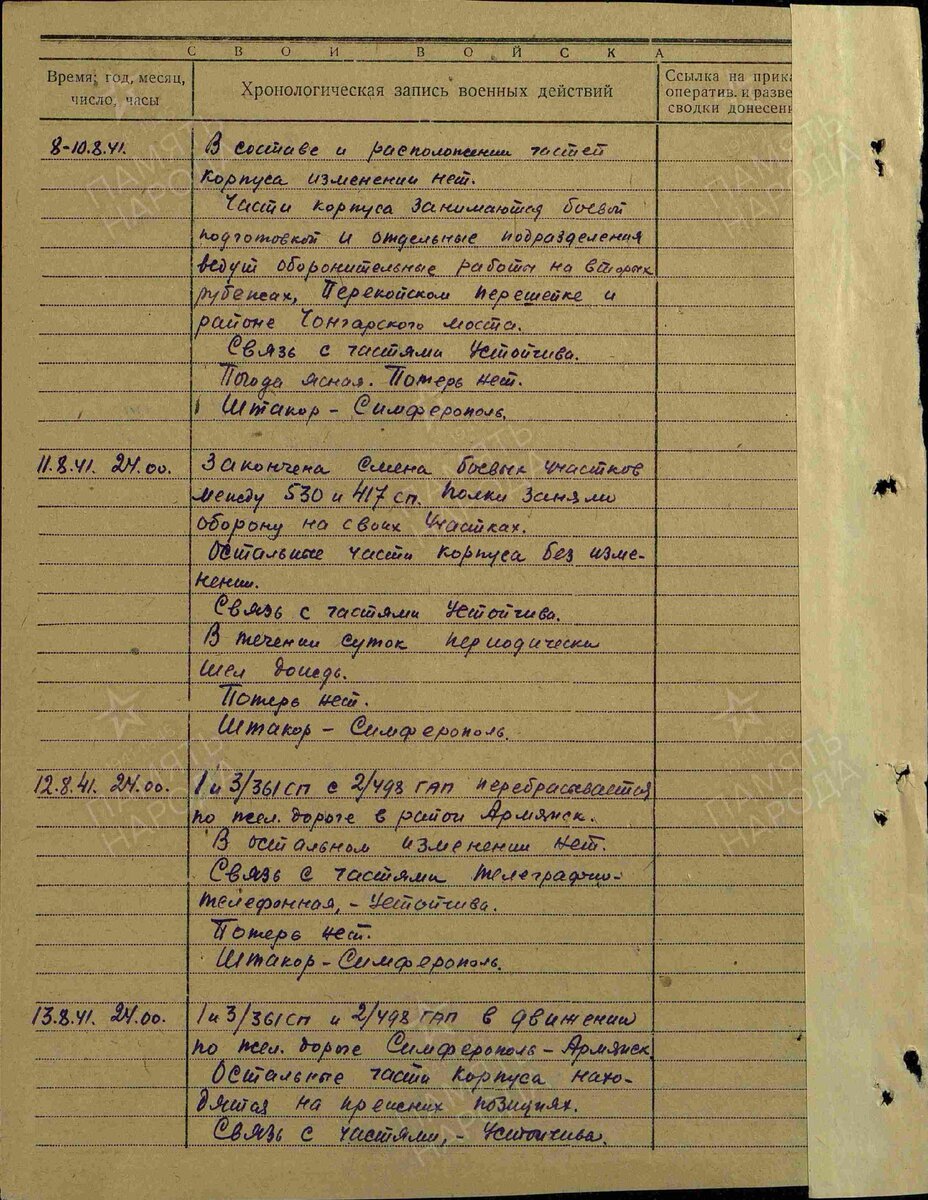 СВОИ ВОЙСКА
Время; год, месяц,
число, часы
Хронологическая запись военных действий
Ссылка на прика
оператив. и разве
сводки донесен
8-10.8.41.
В составе и расположении частей
корпуса изменений нет.
Части корпуса занимаются боевой
подготовкой и отдельные подразделения
ведут оборонительные работы на вторых
рубежах, Перекопском перешейке и
районе Чонгарского моста.
Связь с частями устойчива.
Погода ясная. Потерь нет.
Штакор - Симферополь.
11.8.41. 24.00.
Закончена смена боевых участков
между 530 и 417 сп. Полки заняли
оборону на своих участках.
Остальные части корпуса без изме-
нении.
Связь с частями устойчива.
В течении суток периодически
шел дождь.
Потерь нет.
Штакор - Симферополь.
12.8.41. 24.00.
1 и 3/361 сп с 2/498 ГАП перебрасывается
по жел. дороге в район Армянск.
В остальном изменении нет.
Связь с частями телеграфно-
телефонная, - устойчива.
Потерь нет.
Штакор - Симферополь.
13.8.41. 24.00.
1 и 3/361 сп и 2/498 ГАП в движении
по жел. дороге Симферополь - Армянск
Остальные части корпуса нахо-
дятся на прежних позициях.
Связь с частями, - устойчива.
ПАМЯТЬ
НАРОДА